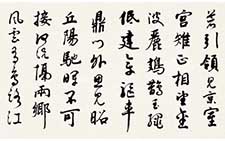 蒼引領見京室
宮雉正相望金
波麗鳷鵲玉繩
低建章驅車
鼎門外思見昭
丘陽馳暉不可
接何況隔兩鄉
風雲有鳥路江